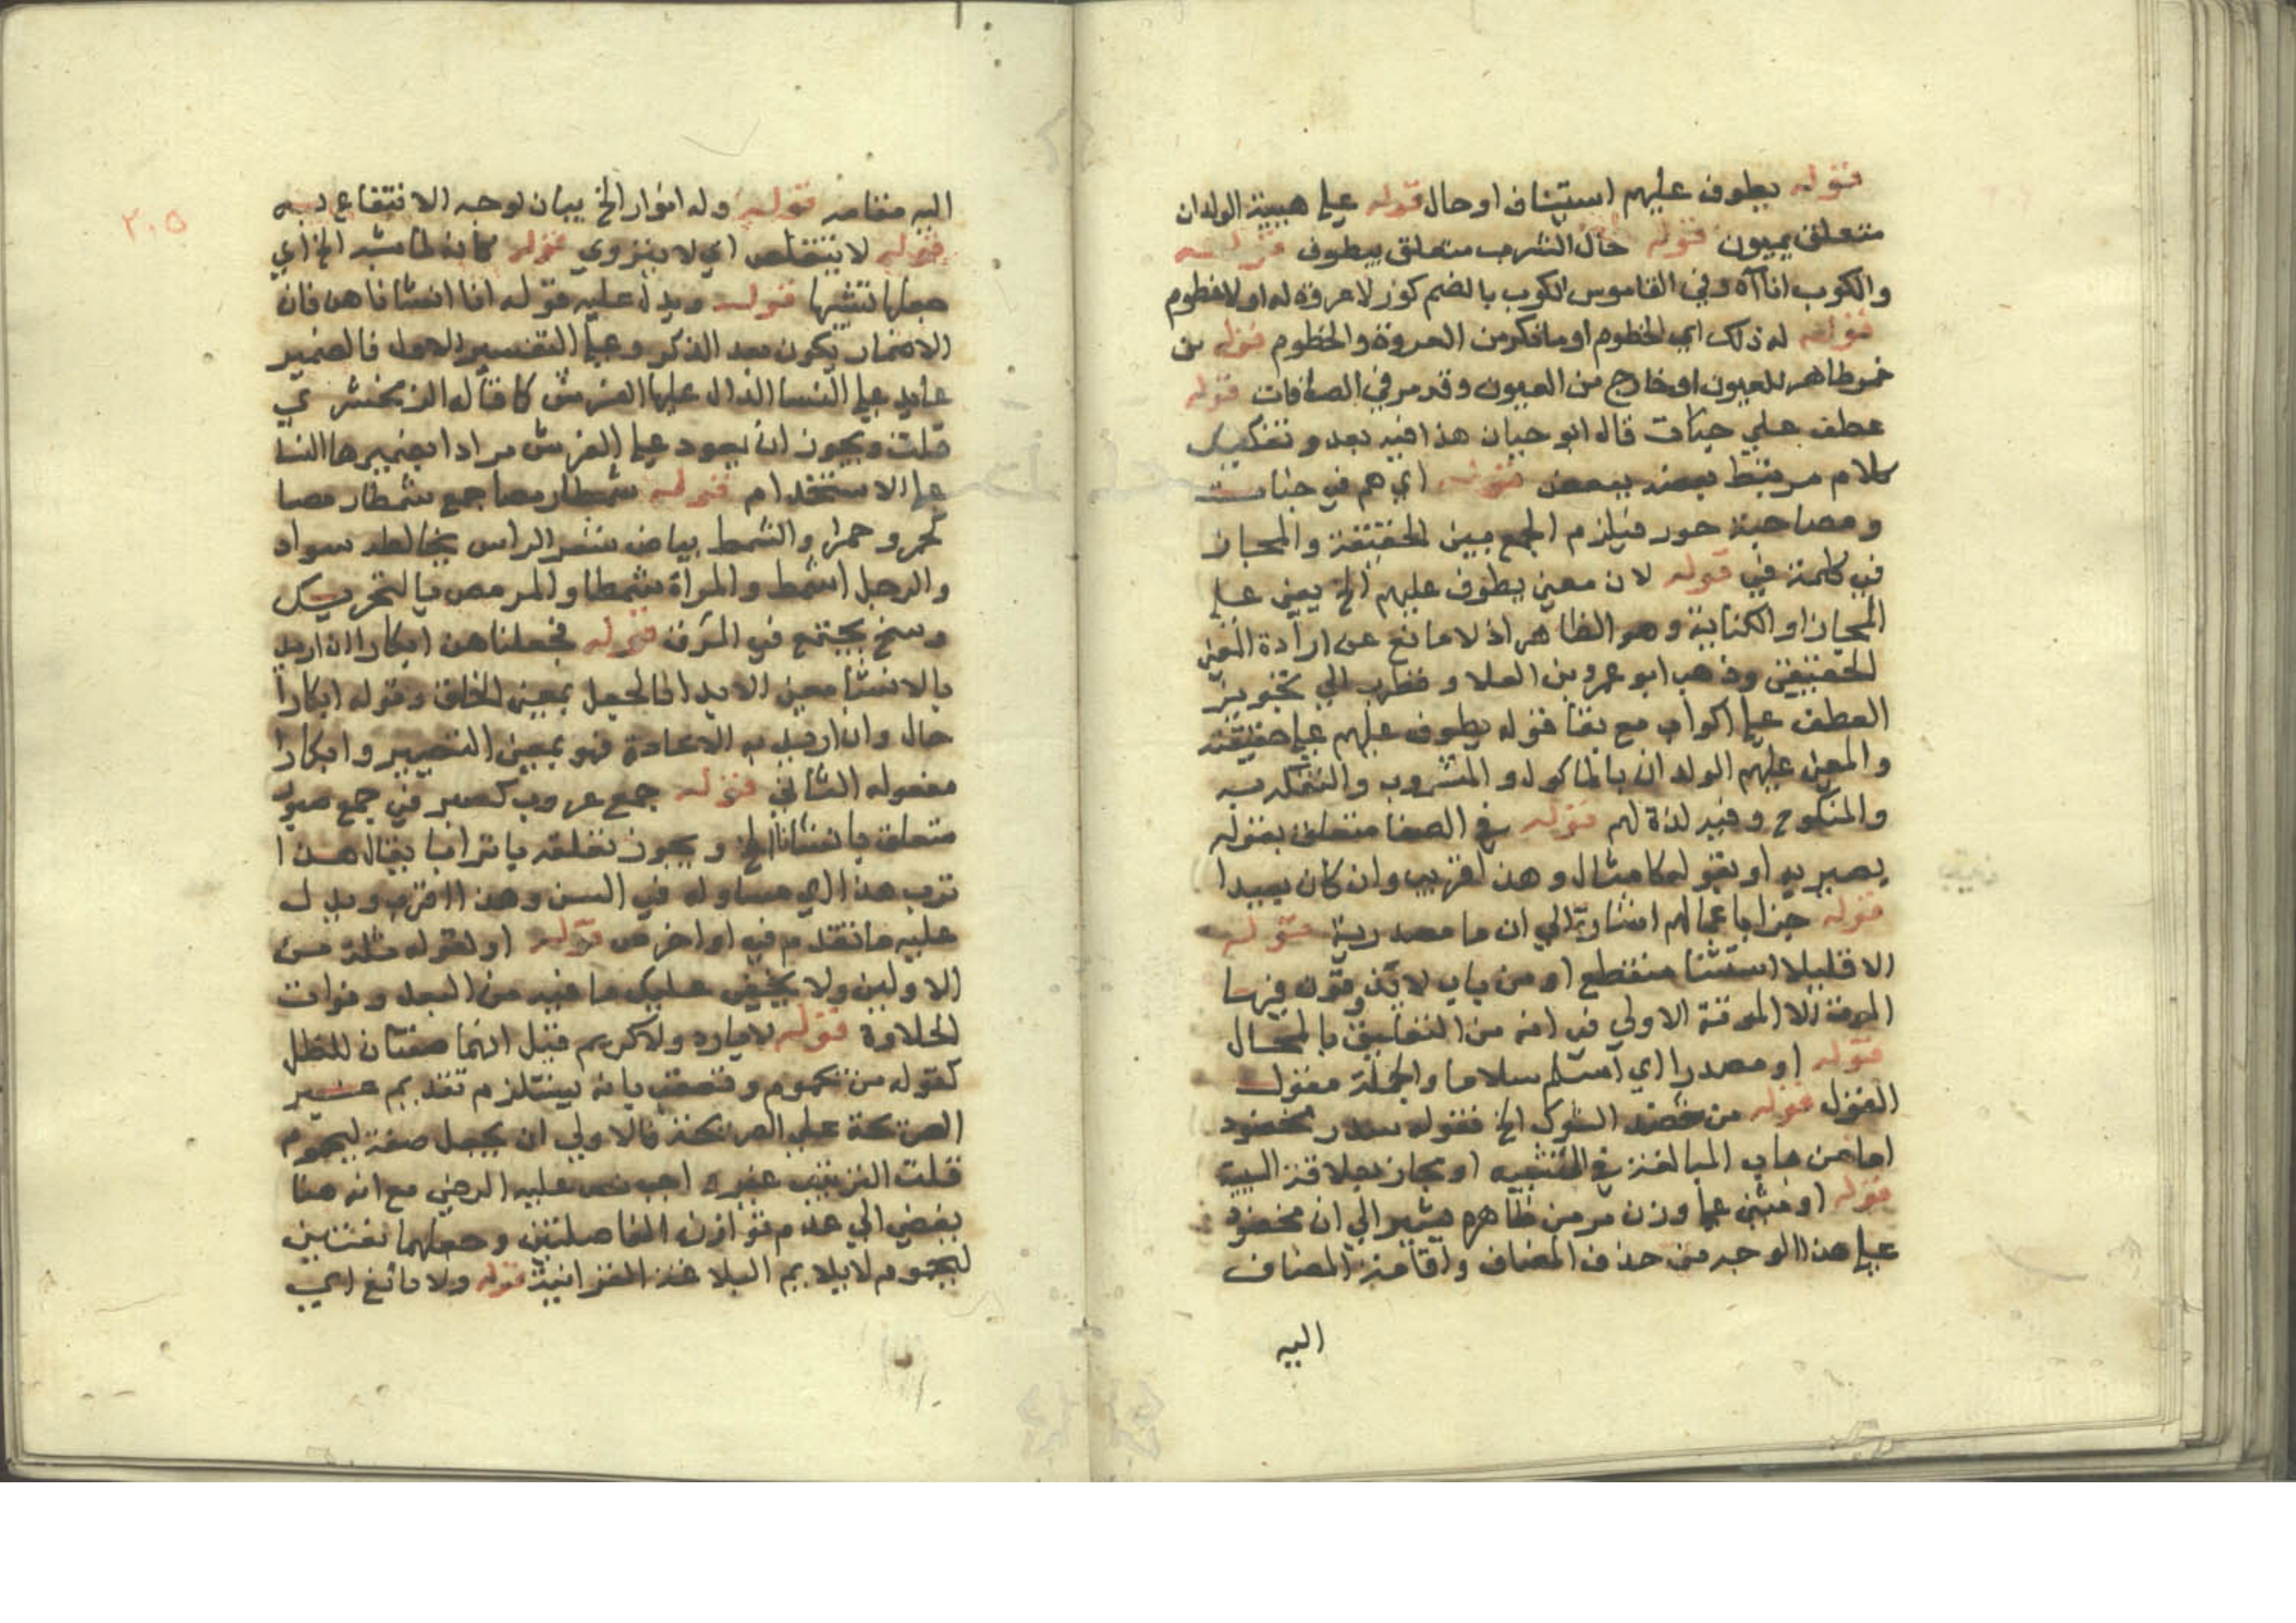 قوله يطوف عليهم استيناف او حال قوله على هيية الولدان
متعلق بيبقون قوله حال الشرب متعلق بيطوف قوله
والكوب اناآه وفي القاموس الكوب بالضم كوز لا عروة له او لا خطوم
قوله له ذلك اي الخطوم او ما ذكر من العروة والخطوم قوله من
خمر ظاهر للعيون او خارج من العيون وقد مر في الصافات قوله
عطف على جنات قال ابو حيان هذا فيه بعد وتفكيك
كلام مرتبط بعضه ببعض قوله اي هم في جنات
ومصاحبة حور فيلزم الجمع بين الحقيقة والمجاز
في كلمة في قوله لان معنى يطوف عليهم الخ يعني على
المجاز او الكناية وهو الظاهر اذ لا مانع عن ارادة المعنى
الحقيقي وذهب ابو عمرو بن العلا وقطرب الى تجويز
العطف على اكواب مع بقا قوله يطوف عليهم على حقيقته
والمعنى عليهم الولدان بالماكول والمشروب والتفكه به
والمنكوح وفيه لذة لهم قوله في الصفا متعلق بقوله
يضير به او بقوله كامثال وهذا قريب وان كان بعيدا
قوله جزا باعمالهم اشارة الى ان ما مصدرية قوله
الا قليلا استثنا منقطع او من باب لا يذوقون فيها
الموت الا الموتة الاولى في انه من التعليق بالمحال
قوله او مصدرا اي اسلم سلاما والجملة مقول
القول قوله من خضد الشوك الخ فقوله سدر مخضود
اما من باب المبالغة في التشبيه او مجاز بعلاقة السببية
قوله او مثنى على وزن مرمى ظاهره يشير الى ان مخضود
على هذا الوجه من حذف المضاف واقامة المضاف
اليه
٢٠٥
اليه مقامه قوله وله انوار الخ بيان لوجه الانتفاع به
قوله لا يتقلص اي لا ينزوي قوله كانه لما شبه الخ اي
قوله ويدل عليه قوله انا انشاناهن فان
الاضمار يكون بعد الذكر وعلى التفسير الاول فالضمير
عايد على النسا الدال عليها الفرش كما قاله الزمخشري
قلت ويجوز ان يعود على الفرش مرادا بضميرها النسا
على الاستخدام قوله شمطا رمصا جمع شمطا رمصا
كحمر وحمرا والشمط بياض شعر الراس يخالطه سواد
والرجل اشمط والمراة شمطا والرمص بالتحريك
وسخ يجتمع في الموق قوله فجعلناهن ابكارا ان اريد
بالانشا معنى الابدا فالجعل بمعنى الخلق وقوله ابكارا
حال وان اريد به الاعادة فهو بمعنى التصيير وابكارا
مفعوله الثاني قوله جمع عروب كصبر في جمع صبور
متعلق بانشانا الخ ويجوز تعلقه باترابا يقال هذا
ترب هذا اي مساو له في السن وهذا اقرب ويدل
عليه ما تقدم في اواخر ص قوله او لقوله ثلة من
الاولين ولا يخفى عليك ما فيه من البعد وفوات
الحلاوة قوله لا بارد ولا كريم قيل انهما صفتان للظل
كقوله من يحموم وتعقب بانه يستلزم تقديم غير
الصريحة على الصريحة فالاولى ان يجعل صفة ليحموم
قلت الترتيب غير واجب نص عليه الرضي مع انه هنا
يفضي الى عدم توازن الفاصلتين وجعلهما نعتين
ليحموم لا يلايم البلاغة القرانية قوله ولا مانع اي